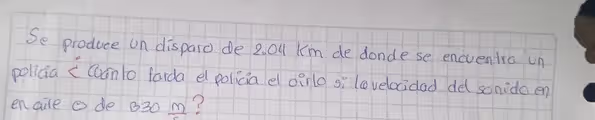 Se produce un disparo de 2.04 Km de donde se encuentra un
policia ¿ Cuanto tarda el policia el oirlo si la velocidad del sonido en
en aire es de 330 m/s?